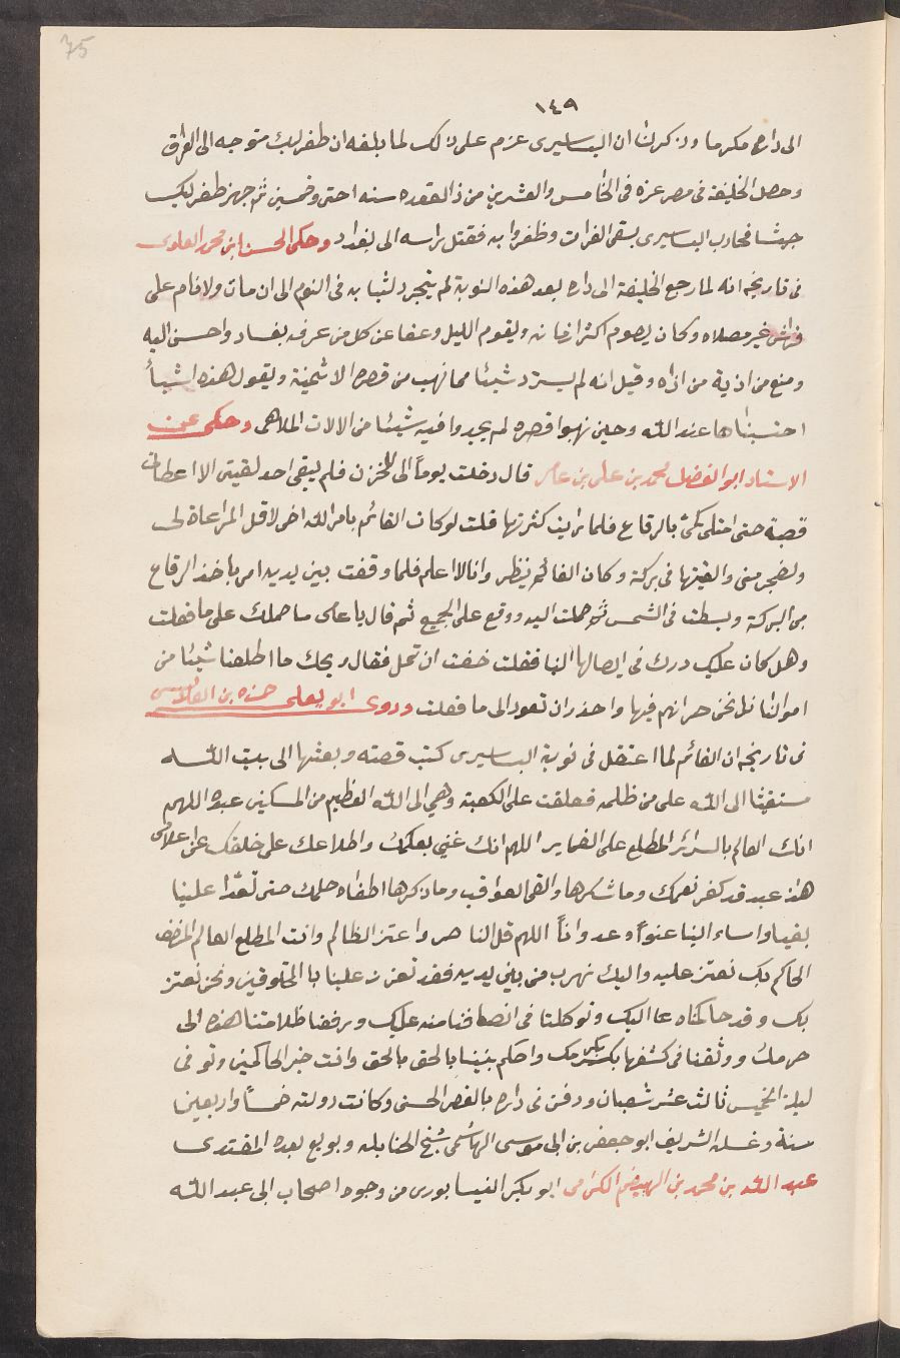 75
١٤٩
الى داره مكرما وذكرنا ان البساسيرى عزم على ذلك لما بلغه ان طغرلبك متوجه الى العراق
وحصل الخليفة فى مصر عزه فى الخامس والعشرين من ذ القعده سنه احتى وخمسين ثم جهز طغرلبك
جيشا فحارب البساسيرى بسقى الفرات وظفروا به فقتل براسه الى بغداد وحكى الحسن ابن محمد العلوى
فى تاريخه انه لما رجع الخليفة الى داره بعد هذه النوبة لم يتجرد لثيابه فى النوم الى ان مات ولا نام على
فراش غير مصلاه وكان يصوم اكثر زمانه ويقوم الليل وعفا عن كل من عرف بفساد واحسن اليه
ومنع من اذية من اذاه وقيل انه لم يسترد شيئا مما نهب من قصره الا بثمينة ويقول هذه اشيأ
احتسبناها عند الله وحين نهبوا قصره لم يجدوا فيه شيئا من الالات الملاهى وحكى عن
الاستاد ابو الفضل محمد بن على بن عامر قال دخلت يوماً الى المخزن فلم يبقى احد لقيتى الا اعطانى
قصة حتى امتلى كمى بالرقاع فلما رايت كثرتها قلت لو كان القائم بامر الله اخى لاقل المراعاة لى
ولضجر منى والقيتها فى بركة وكان القائم ينظر وانا لا اعلم فلما وقفت بين يديه امر باخذ الرقاع
من البركة وبسطت فى الشمس ثم حملت اليه ووقع على الجميع ثم قال يا عامى ما حملك على ما فعلت
وهل كان عليك درك فى ايصالها الينا فقلت خفت ان تمل فقال ويحك ما اطلقنا شيئا من
اموالنا بل نحن خزانهم فيها واحذر ان تعود الى ما فعلت وروى ابو يعلى حمزه بن القلانسى
فى تاريخه ان القائم لما اعتقل فى نوبة البساسيرى كتب قصته وبعثها الى بيت اللـه
مستغيثا الى الله على من ظلمه فعلقت على الكعبة وهي الى الله العظيم من المسكين عبده اللهم
انك العالم بالسرائر المطلع على الضماير اللهم انك غني بعلمك واطلاعك على خلقك عن اعلامى
هذا عبد قد كفر نعمك وما شكرها والقى العواقب وما ذكرها اطفاه حلمك حتى تعدا علينا
بغيا واساء الينا عنواً وعدواناً اللهم قل الناصر واعتز الظالم وانت المطلع العالم المنصف
الحاكم بك نعتز عليه واليك نهرب من بين يديه فقد تعزز علينا با المخلوقين ونحن نعتز
بك وقد حاكمناه عا اليك وتوكلنا فى انصافنا منه عليك ورفعنا ظلامتنا هذه الى
حرمك ووثقنا فى كشفها بكرمك واحكم بيننا بالحق بالحق وانت خير الحاكمين وتوفى
ليلة الخميس ثالث عشر شعبان ودفن فى داره بالقصر الحسنى وكانت دولته خمساً واربعين
سنة وغسله الشريف ابو جعفر بن ابى موسى الهاشمى شيخ الحنابله وبويع بعده المقتدى
عبد الله بن محمد بن الهيضم الكرامى ابو بكر النيسابورى من وجوه اصحاب ابى عبد اللـه